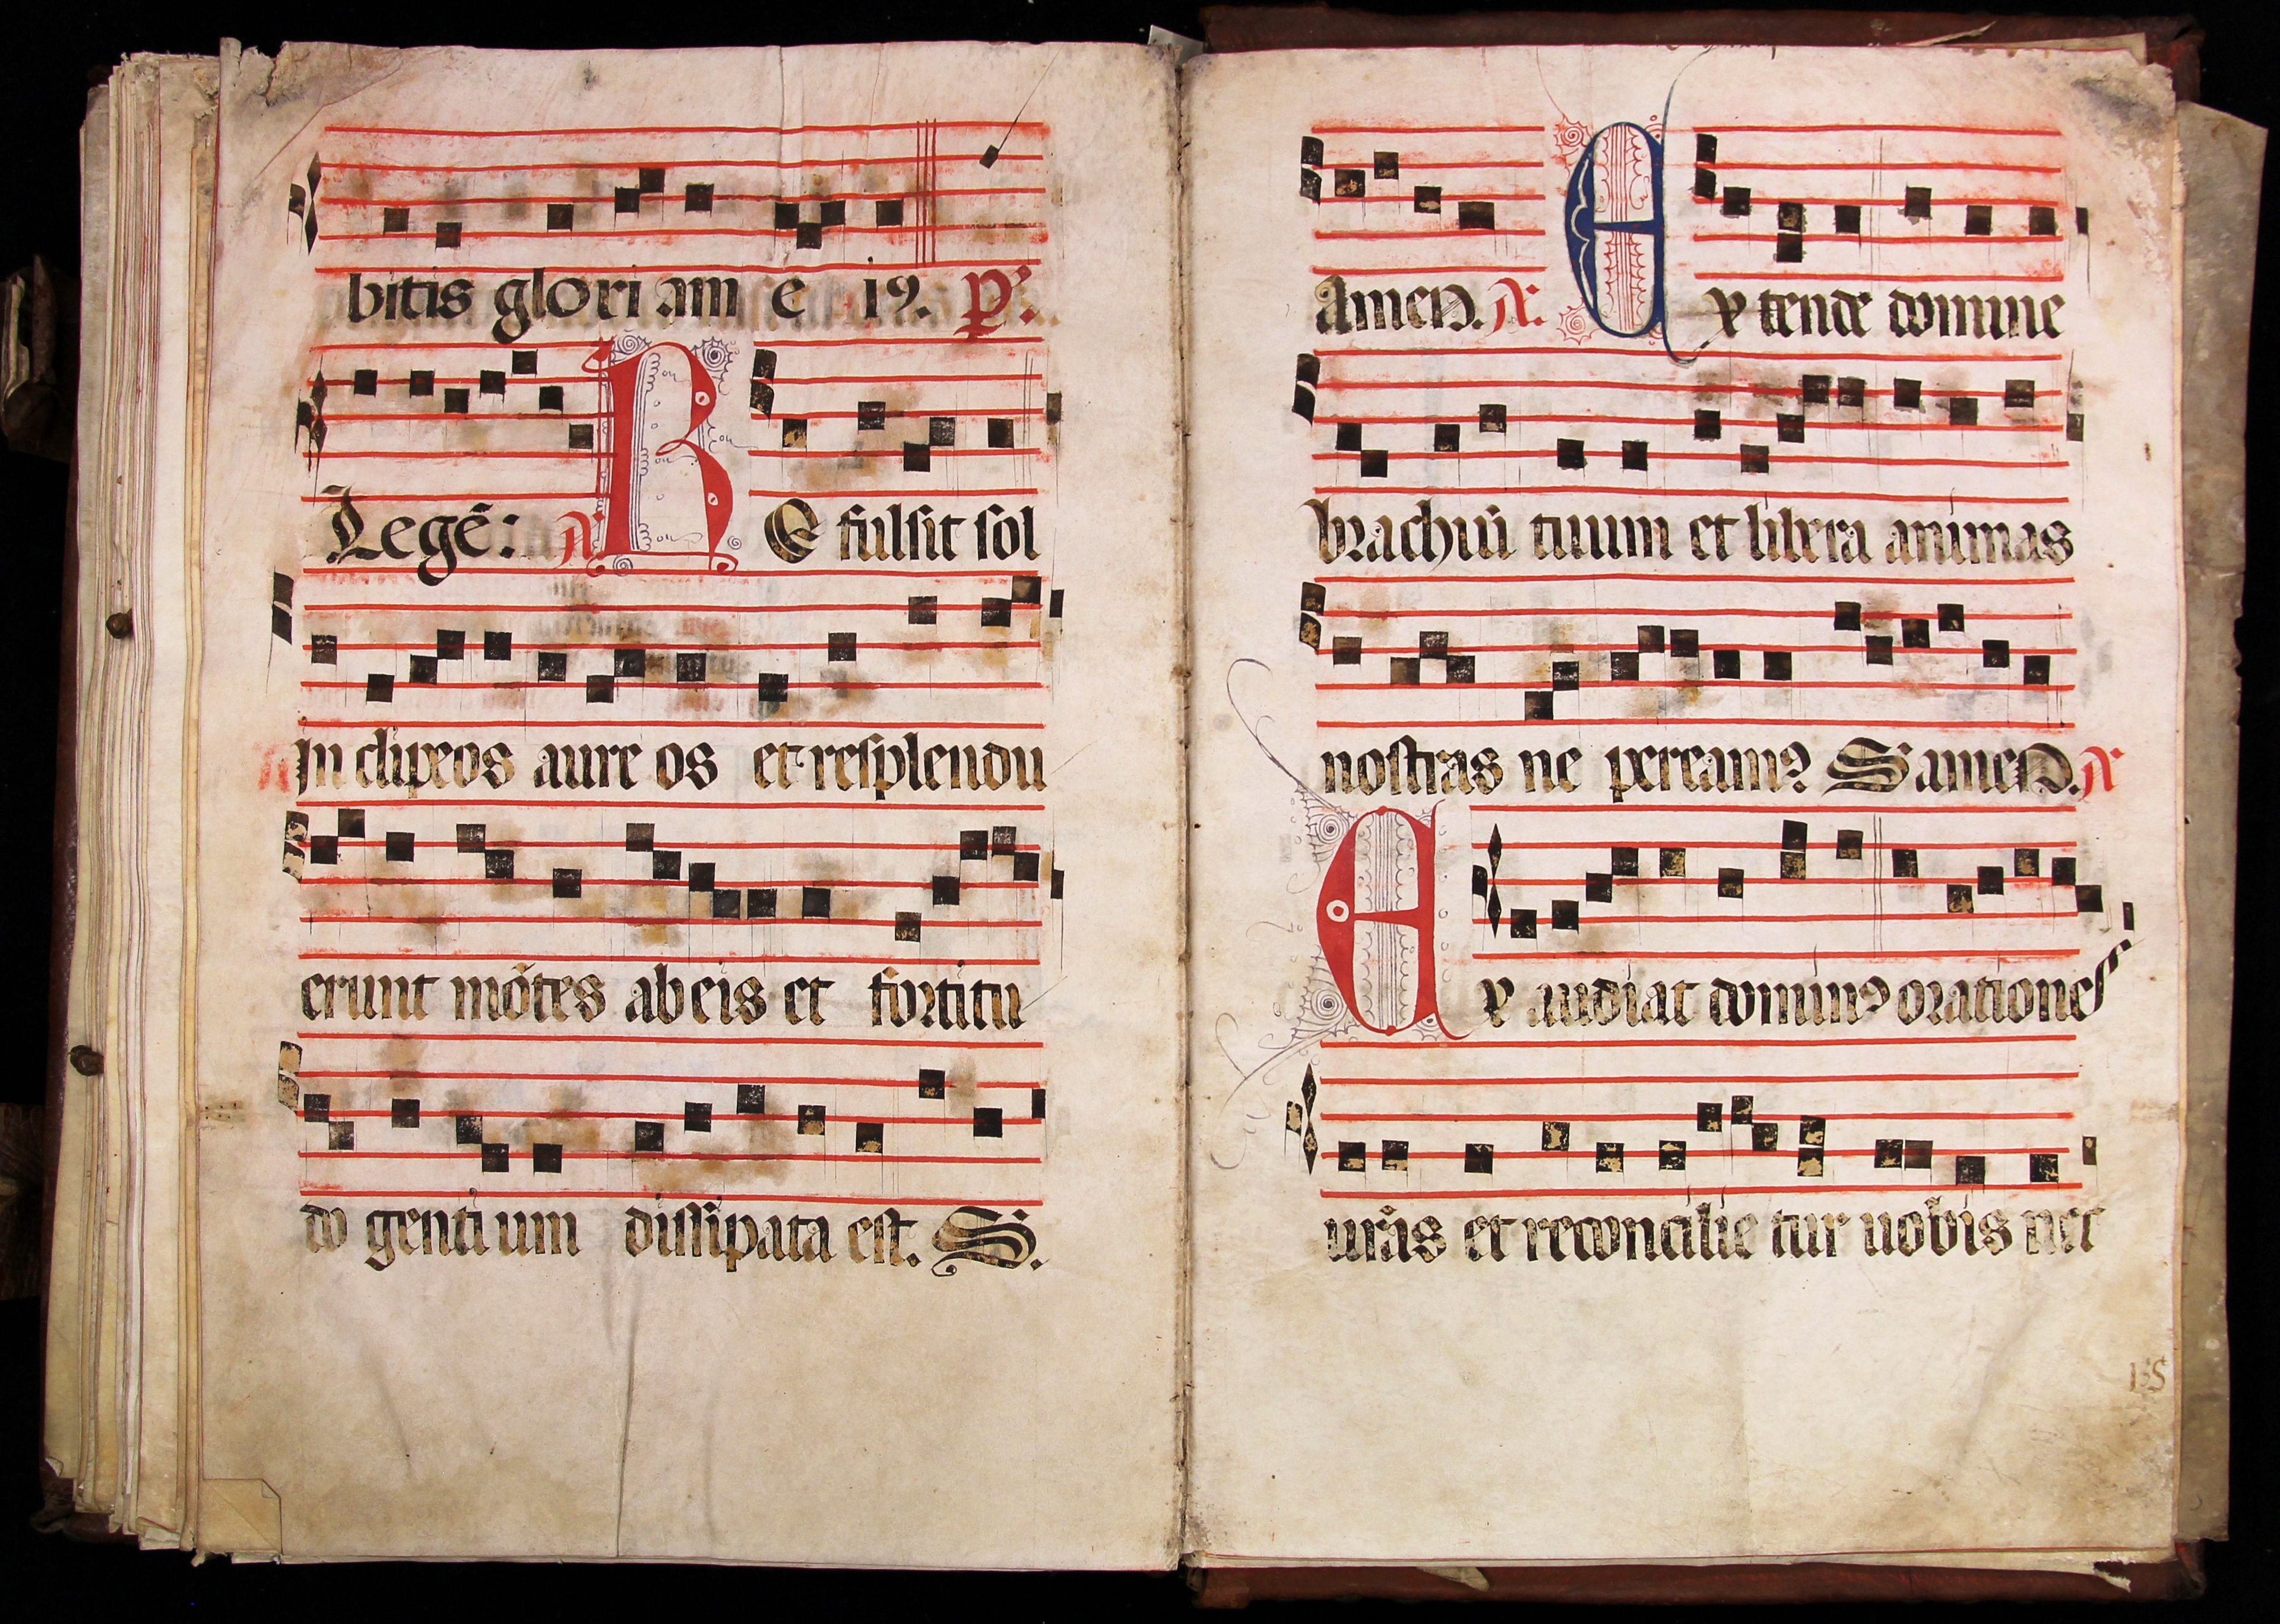 bitis gloriam ei9. p̱.
Legē: A. RE fulsit sol
in clipeos aureos et resplendu
erunt mōtes ab eis et fortitu
do gentium dissipata est. S.
Amen. A. Extende domine
brachiū tuum et libera animas
nostras ne peream9 S amen. A
Exaudiat domin9 orationes
urās et reconcilietur uobis nec